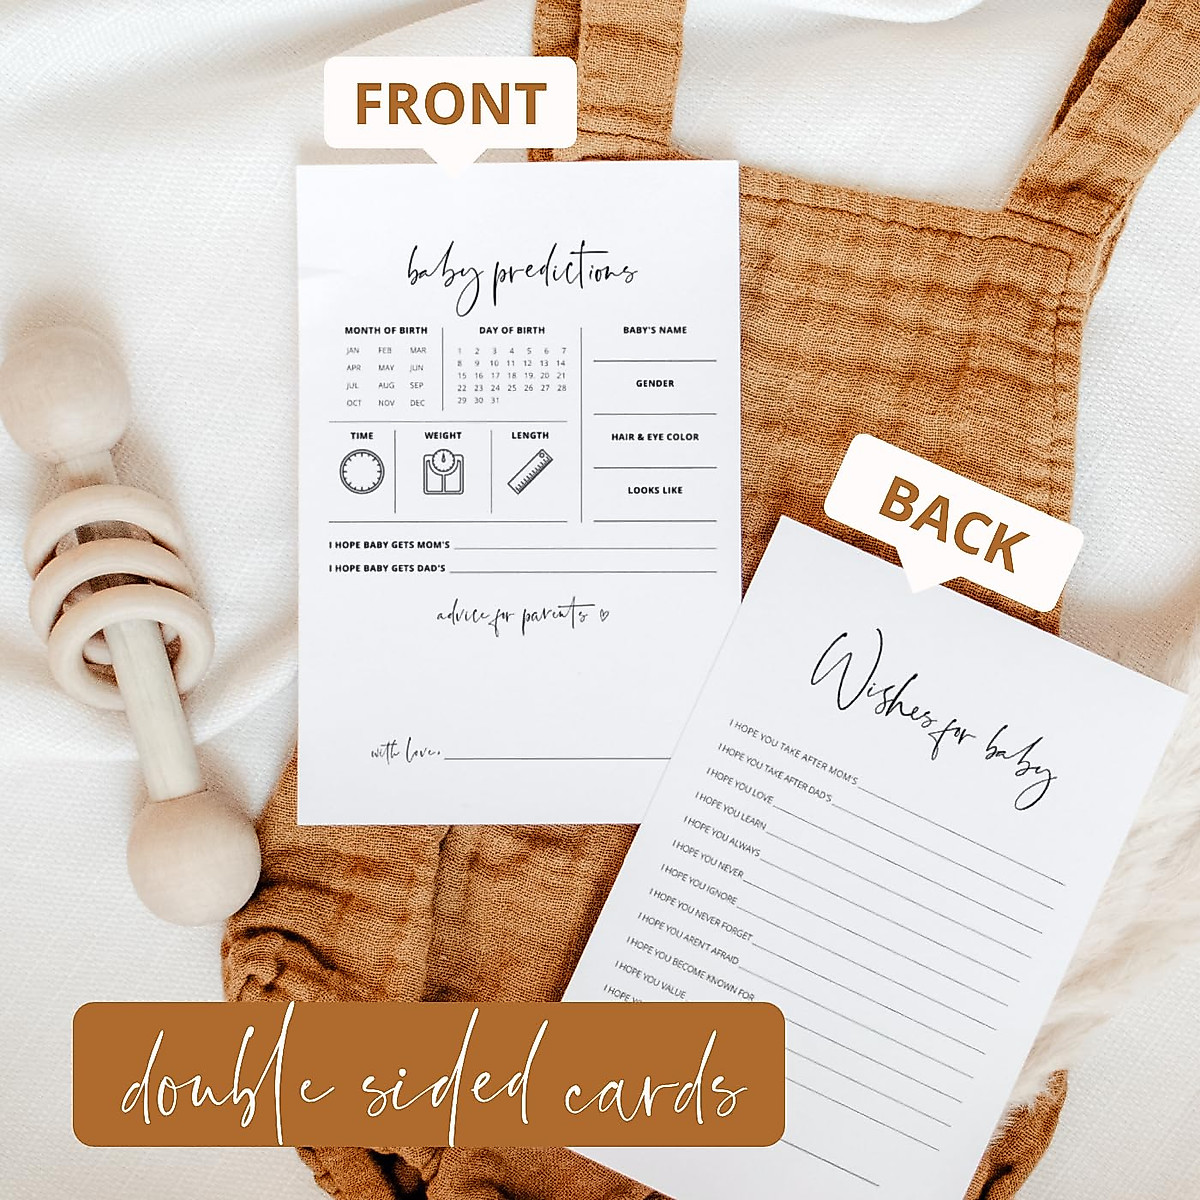 FRONT
baby predictions
MONTH OF BIRTH
JAN FEB MAR
APR MAY JUN
JUL AUG SEP
OCT NOV DEC
DAY OF BIRTH
1 2 3 4 5 6 7
8 9 10 11 12 13 14
15 16 17 18 19 20 21
22 23 24 25 26 27 28
29 30 31
BABY'S NAME
GENDER
HAIR & EYE COLOR
LOOKS LIKE
TIME WEIGHT LENGTH
I HOPE BABY GETS MOM'S
I HOPE BABY GETS DAD'S
advice for parents
with love,
BACK
Wishes for baby
I HOPE YOU TAKE AFTER MOM'S
I HOPE YOU TAKE AFTER DAD'S
I HOPE YOU LOVE
I HOPE YOU LEARN
I HOPE YOU ALWAYS
I HOPE YOU NEVER
I HOPE YOU IGNORE
I HOPE YOU NEVER FORGET
I HOPE YOU AREN'T AFRAID
I HOPE YOU BECOME KNOWN FOR
I HOPE YOU VALUE
I HOPE
double sided cards